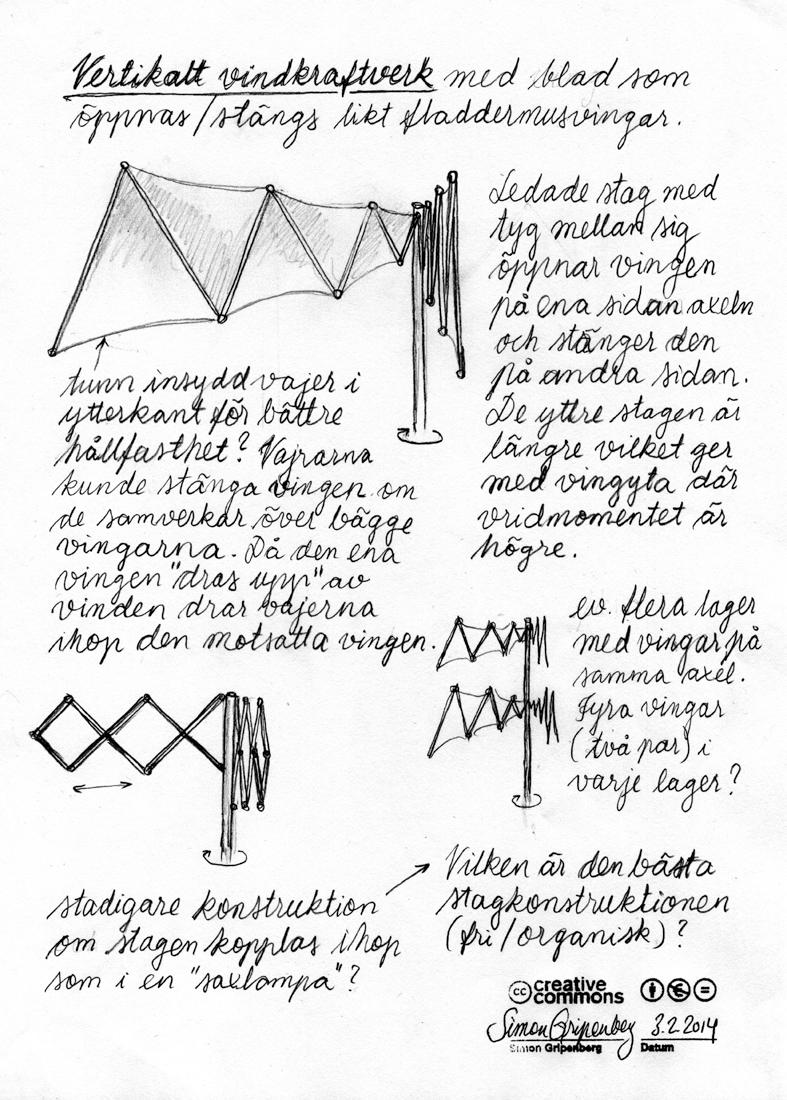 Vertikalt vindkraftverk med blad som
öppnas/stängs likt fladdermusvingar.
Ledade stag med
tyg mellan sig
öppnar vingen
på ena sidan axeln
och stänger den
på andra sidan.
De yttre stagen är
längre vilket ger
med vingyta där
vridmomentet är
högre.
tunn insydd vajer i
ytterkant för bättre
hållfasthet? Vajrarna
kunde stänga vingen om
de samverkar över bägge
vingarna. Då den ena
vingen "dras upp" av
vinden drar vajerna
ihop den motsatta vingen.
ev. flera lager
med vingar på
samma axel.
Fyra vingar
(två par) i
varje lager?
stadigare konstruktion
om stagen kopplas ihop
som i en "saxlampa"?
Vilken är den bästa
stagkonstruktionen
(fri/organisk)?
cc creative
commons
Simon Gripenberg 3.2.2014
Simon Gripenberg Datum